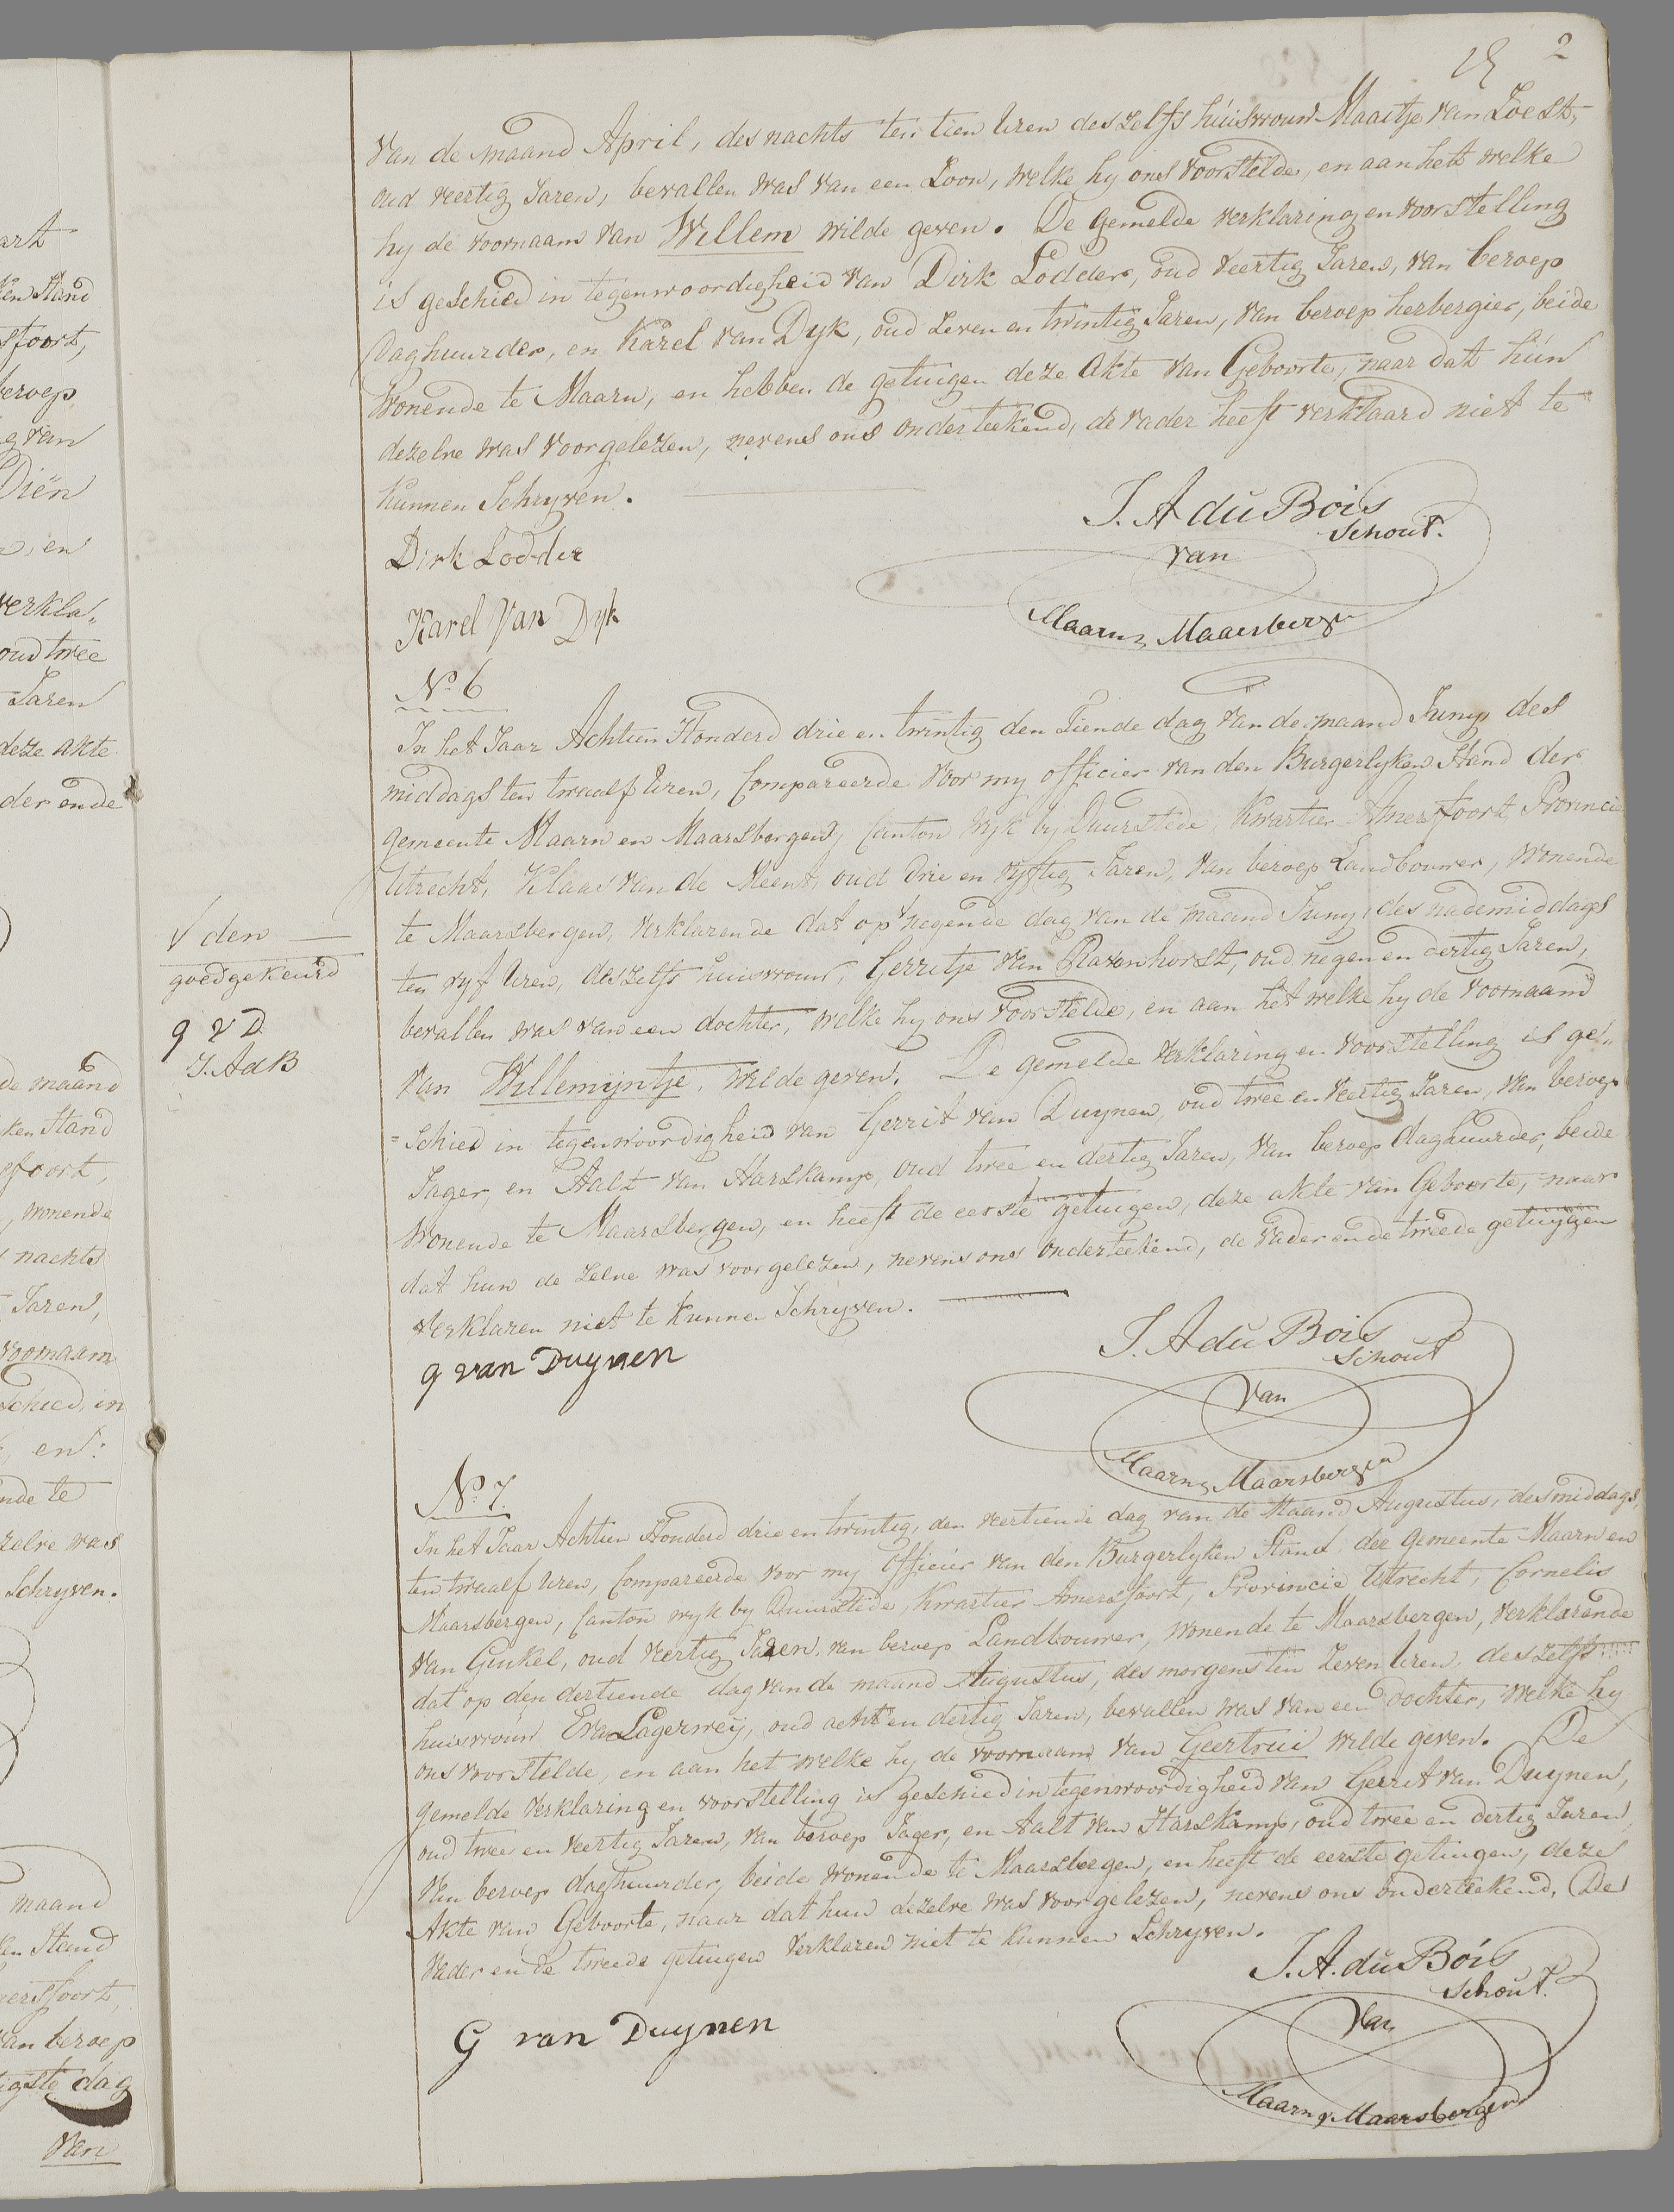 2
van de maand April, des nachts ten tien Uren deszelfs huisvrouw Maatje van Zoest,
oud veertig Jaren, bevallen was van een Zoon, welke hy ons voorstelde, en aan het welke
hy de voornaam van Willem wilde geven. De gemelde verklaring en voorstelling
is geschied in tegenwoordigheid van Dirk Lodder, oud veertig Jaren, van beroep
Daghuurder, en Karel van Dyk, oud zeven en twintig Jaren, van beroep herbergier, beide
Wonende te Maarn, en hebben de getuigen deze Akte van Geboorte, naar dat hún
dezelve was voorgelezen, nevens ons onderteekend, de vader heeft verklaard niet te
kunnen Schryven.
J. A du Bois
Schout.
van
Maarn & Maarsbergen
Dirk Lodder
Karel Van Dyk
No. 6
In het Jaar Achtien Honderd drie en twintig den Tiende dag van de maand Juny des
middags ten twaalf Uren, Compareerde voor my officier van den Burgerlyken Stand der
gemeente Maarn en Maarsbergen, Canton Wyk by Duurstede, Kwartier Amersfoort, Provincie
Utrecht, Klaas van de Meent, oud drie en vyftig Jaren, van beroep Landbouwer, wonende
te Maarsbergen, verklarende dat op √ negende dag van de maand Juny, des nademiddags
ten vyf Uren, deszelfs huisvrouw, Gerritje van Ravenhorst, oud negen en dertig Jaren,
bevallen was van een dochter, welke hy ons voorstelde, en aan het welke hy de voornaam
van Willemijntje, wilde geven. De gemelde verklaring en voorstelling is ge„
=schied in tegenwoordigheid van Gerrit van Duynen, oud twee en veertig Jaren, van beroep
Jager, en Aalt van Harskamp, oud twee en dertig Jaren, van beroep daghuurder, beide
Wonende te Maarsbergen, en heeft de eerste getuigen, deze akte van Geboorte, naar
dat hun de zelve was voorgelezen, nevens ons onderteekend, de vader en de tweede getuygen
verklaren niet te kunnen Schryven.
√ den
goedgekeurd
g v D
J. AdB
J. A du Bois
Schout
van
Maarn & Maarsbergen
g van Duynen
No. 7.
In het Jaar Achtien Honderd drie en twintig, den veertiende dag van de Maand Augustus, des middags
ten twaalf Uren, Compareerde voor my officier van den Burgerlyken Stand der Gemeente Maarn en
Maarsbergen, Canton wyk by Duurstede, Kwartier Amersfoort, Provincie Utrecht, Cornelis
van Ginkel, oud veertig Jaren, van beroep Landbouwer, wonende te Maarsbergen, verklarende
dat op den dertiende dag van de maand Augustus, des morgens ten zeven Uren, deszelfs
huisvrouw Eva Lagerweij, oud acht en dertig Jaren, bevallen was van een dochter, welke hy
ons voorstelde, en aan het welke hy de voornaam van Geertrui wilde geven. De
gemelde verklaring en voorstelling is geschied in tegenwoordigheid van Gerrit van Duynen,
oud twee en veertig Jaren, van beroep Jager, en Aalt van Harskamp, oud twee en dertig Jaren,
van beroep daghuurder, beide wonende te Maarsbergen, en heeft de eerste getuigen, deze
Akte van Geboorte, naar dat hun dezelve was voorgelezen, nevens ons onderteekend. De
vader en de tweede getuigen verklaren niet te kunnen Schryven.
J. A. du Bois
Schout.
Van
Maarn & Maarsbergen
G van Duynen